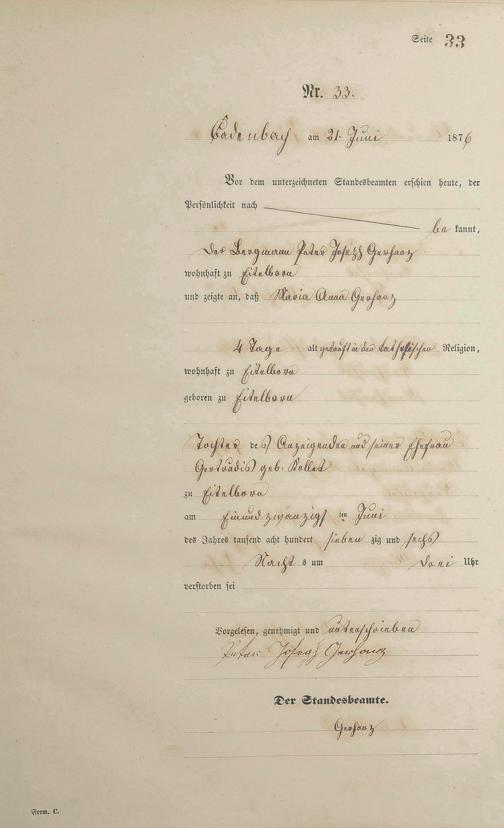 Seite 33
Nr. 33.
Cadenbach am 21. Juni 1876
Vor dem unterzeichneten Standesbeamten erschien heute, der
Persönlichkeit nach
be kannt,
der Bergmann Peter Joseph Gerharz
wohnhaft zu Eitelborn
und zeigte an, daß Maria Anna Gerharz
4 Tage alt getauft in der katholischen Religion,
wohnhaft zu Eitelborn
geboren zu Eitelborn
Tochter des Anzeigenden und seiner Ehefrau
Gertrudis geb. Kollet
zu Eitelborn
am Einundzwanzigsten Juni
des Jahres tausend acht hundert sieben zig und sechs
Nacht s um drei Uhr
verstorben sei
Vorgelesen, genehmigt und unterschrieben
Peter Joseph Gerharz
Der Standesbeamte.
Gerharz
Form. C.